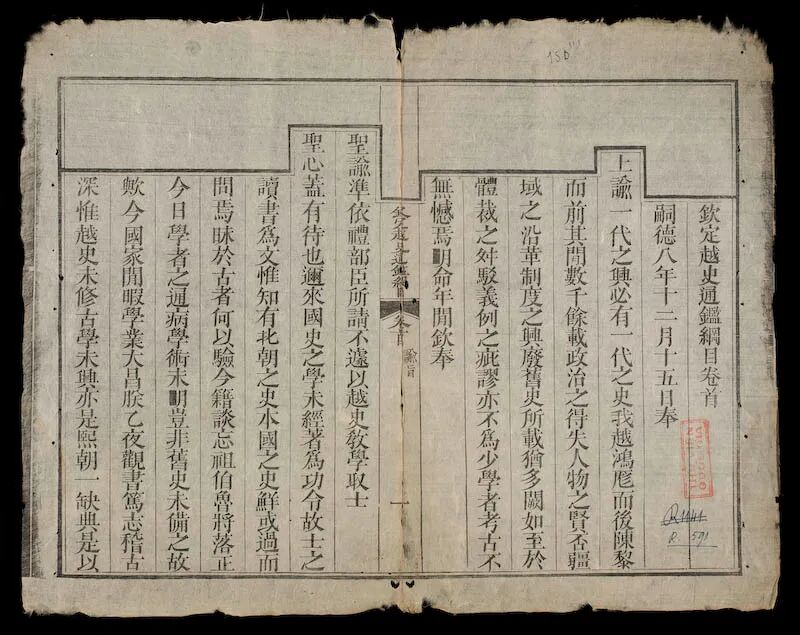 欽定越史通鑑綱目卷首
嗣德八年十二月十五日奉
上諭一代之興必有一代之史我越鴻厖而後陳黎
而前其閒數千餘載政治之得失人物之賢否疆
域之沿革制度之興廢舊史所載猶多闕如至於
體裁之舛駁義例之疵謬亦不爲少學者考古不
無憾焉明命年閒欽奉
欽定越史通鑑綱目 卷首 諭旨 一
聖諭準依禮部臣所請不遽以越史敎學取士
聖心蓋有待也邇來國史之學未經著爲功令故士之
讀書爲文惟知有北朝之史本國之史鮮或過而
問焉昧於古者何以驗今籍談忘祖伯魯將落正
今日學者之通病學術未明豈非舊史未備之故
歟今國家閒暇學業大昌朕乙夜觀書篤志稽古
深惟越史未修古學未興亦是熙朝一缺典是以
150
R.1141
R. 591